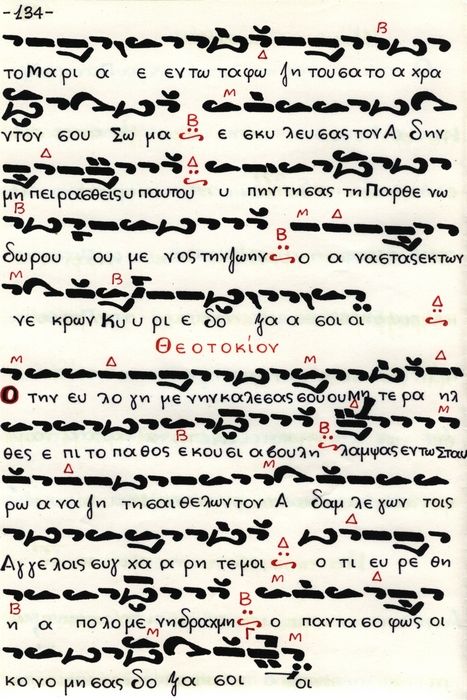 -134-
το Μα ρι α ε εν τω τα φω ζη του σα το α χρα
ντον σου Σω μα ε σκυ λευ σας τον Α δην
μη πει ρασ θεις υ π αυ του υ πην τη σας τη Παρ θε νω
δω ρου ου με νος την ζω ην ο α νασ τας εκ των
νε κρων Κυ υ ρι ε δο ζα α σοι οι
ΘΕΟΤΟΚΙΟΝ
Ο την ευ λο γη με νην κα λε σας σου ου μη τε ρα ηλ
θες ε πι το πα θος ε κου σι α βου λη λαμ ψας εν τω Σταυ
ρω α να ζη τη σαι θε λων τον Α δαμ λε γων τοις
Αγ γε λοις συγ χα α ρη τε μοι ο τι ευ ρε θη
η α πο λο με νη δραχ μη ο παν τα σο φως οι
κο νο μη σας δο ζα σοι οι